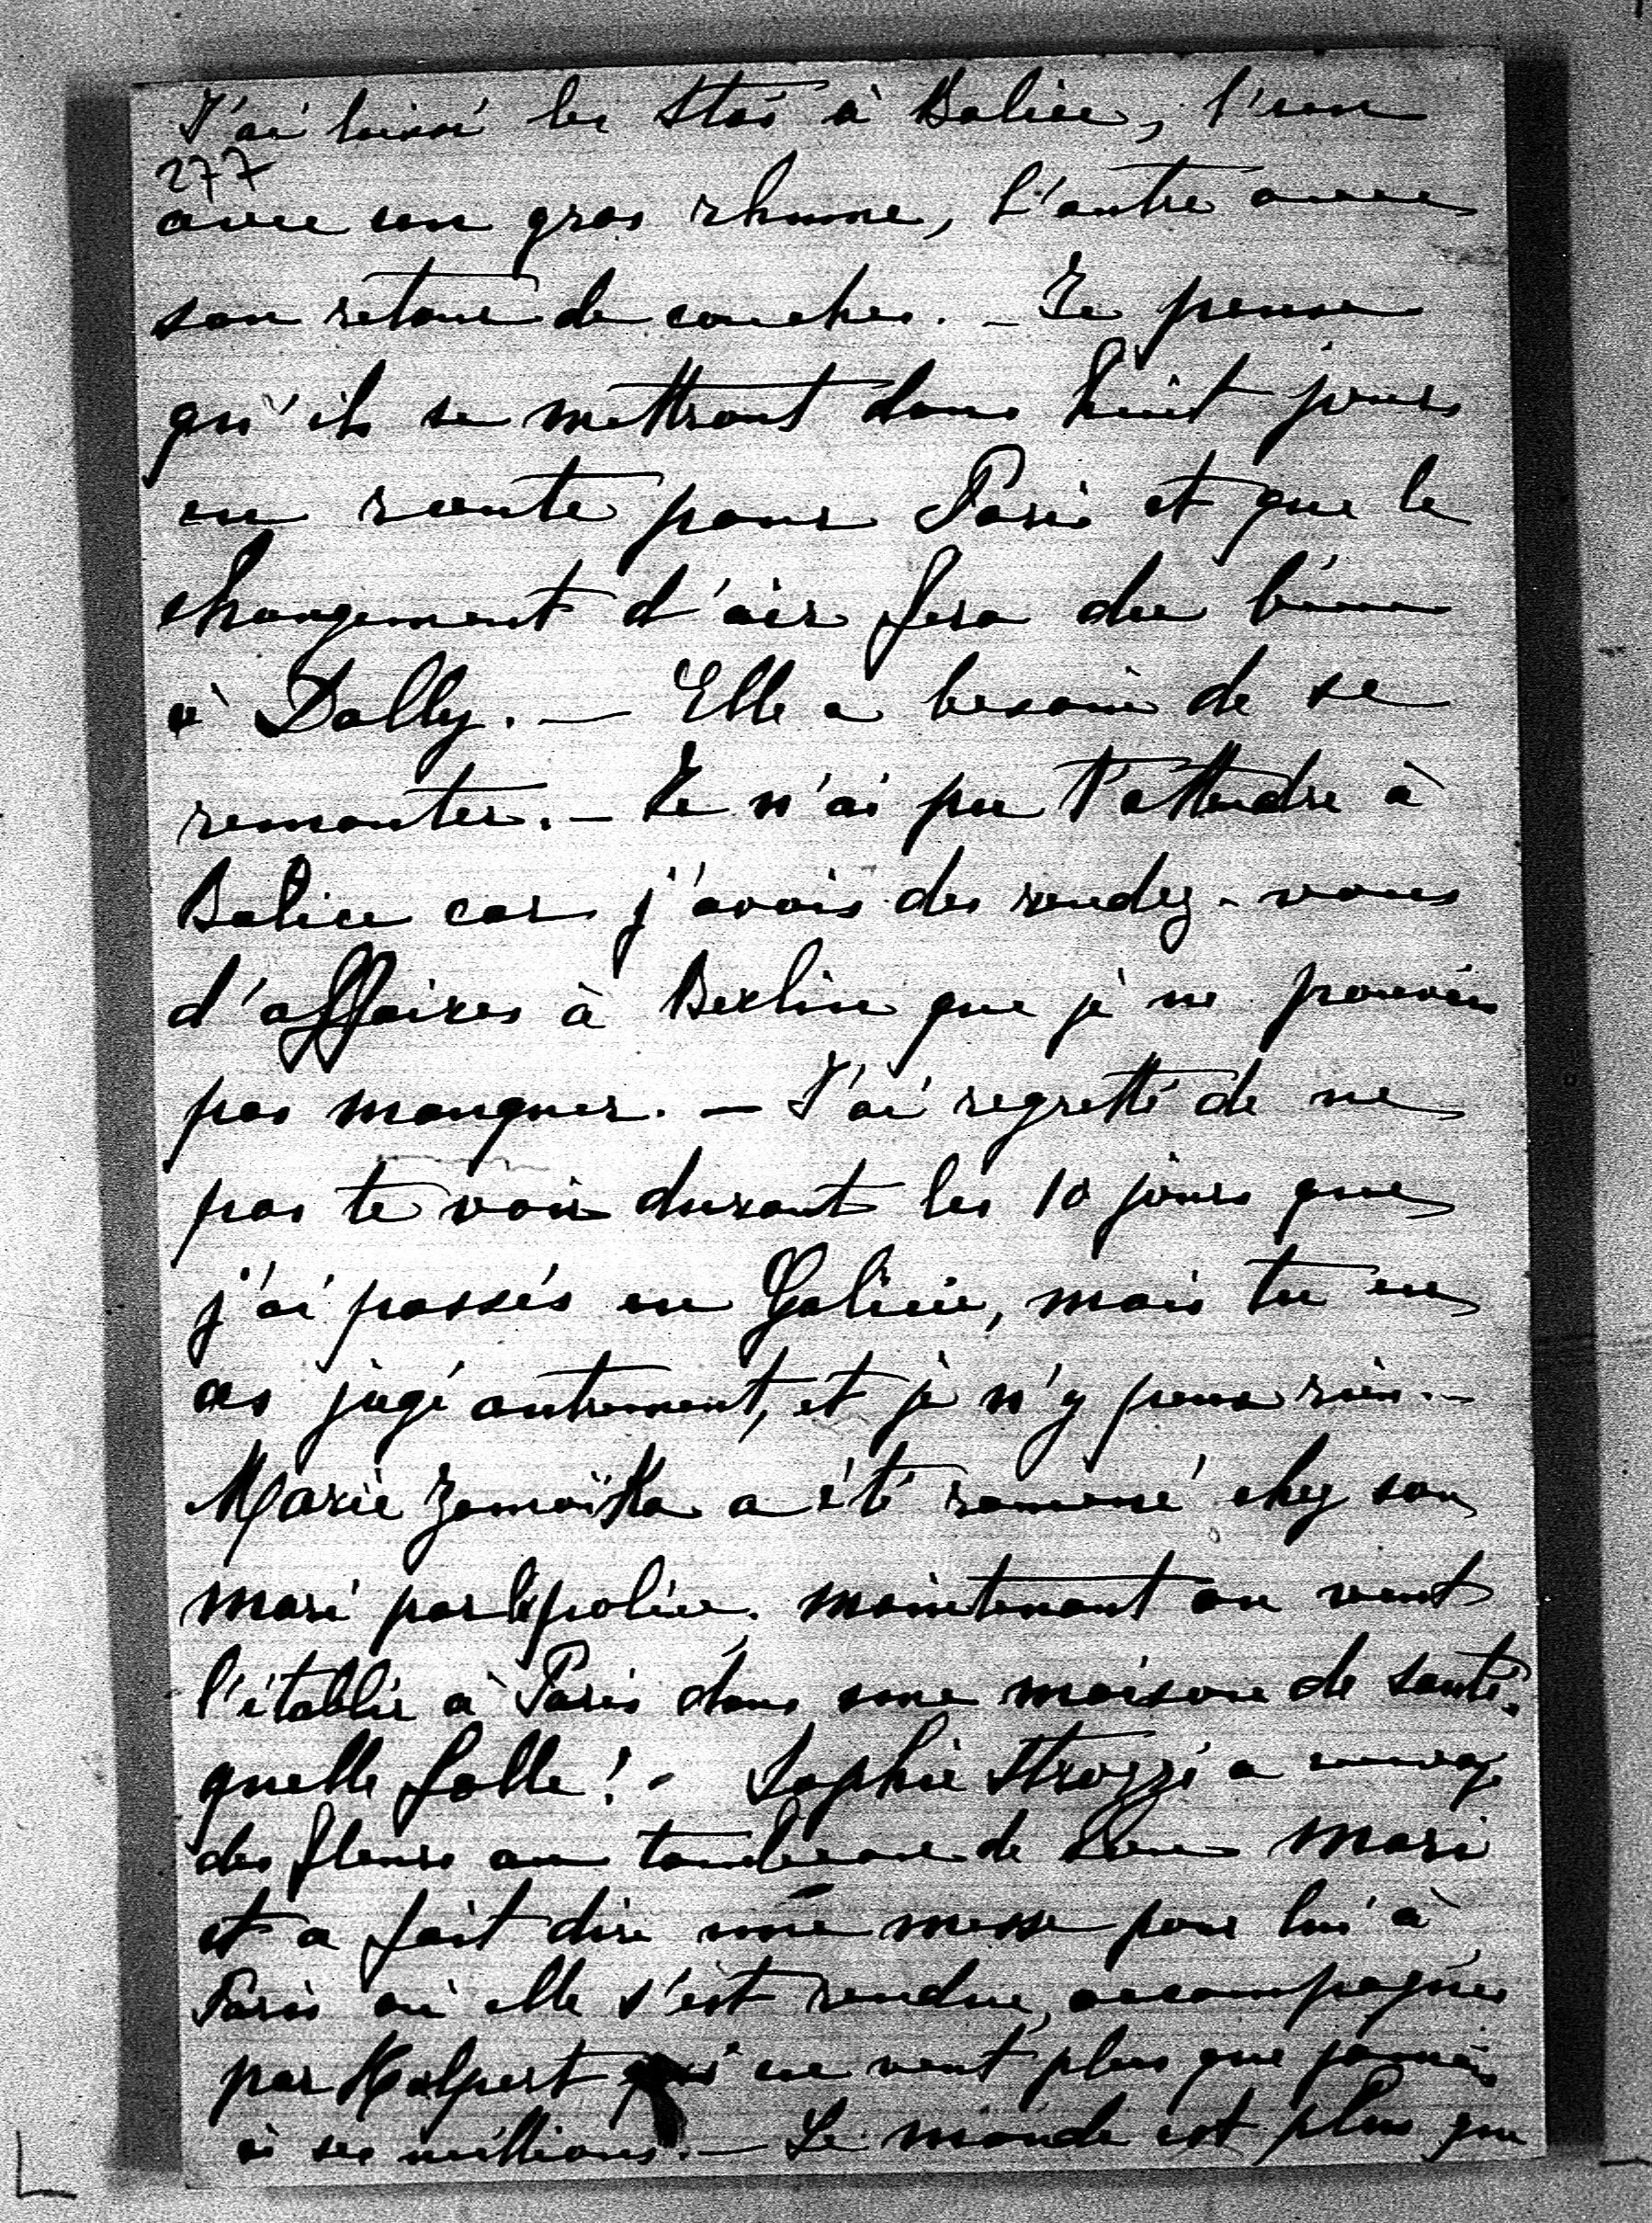 J'ai laissé les Stas à Balice, l'un
277
avec son gros rhume, l'autre avec
son retour de couches. – Je pense
qu'ils se mettront dans huit jours
en route pour Paris et que le
changement d'air fera du bien
à Dolly. – Elle a besoin de se
remonter. – Je n'ai pu t'attendre à
Balice car j'avais des rendez-vous
d'affaires à Berlin que je ne pouvais
pas manquer. – J'ai regretté de ne
pas te voir durant les 10 jours que
j'ai passés en Galicie, mais tu en
as jugé autrement, et je n'y peux rien. –
Marie Zamoïska a été ramené chez son
mari par la police. maintenant on veut
l'établir à Paris dans une maison de santé.
quelle folle! – Sophie Strozzi a envoyé
des fleurs au tombeau de son mari
et a fait dire une messe pour lui à
Paris où elle s'est rendue, accompagnée
par Halpert qui en veut plus que jamais
à ses millions. – Le monde est plus que